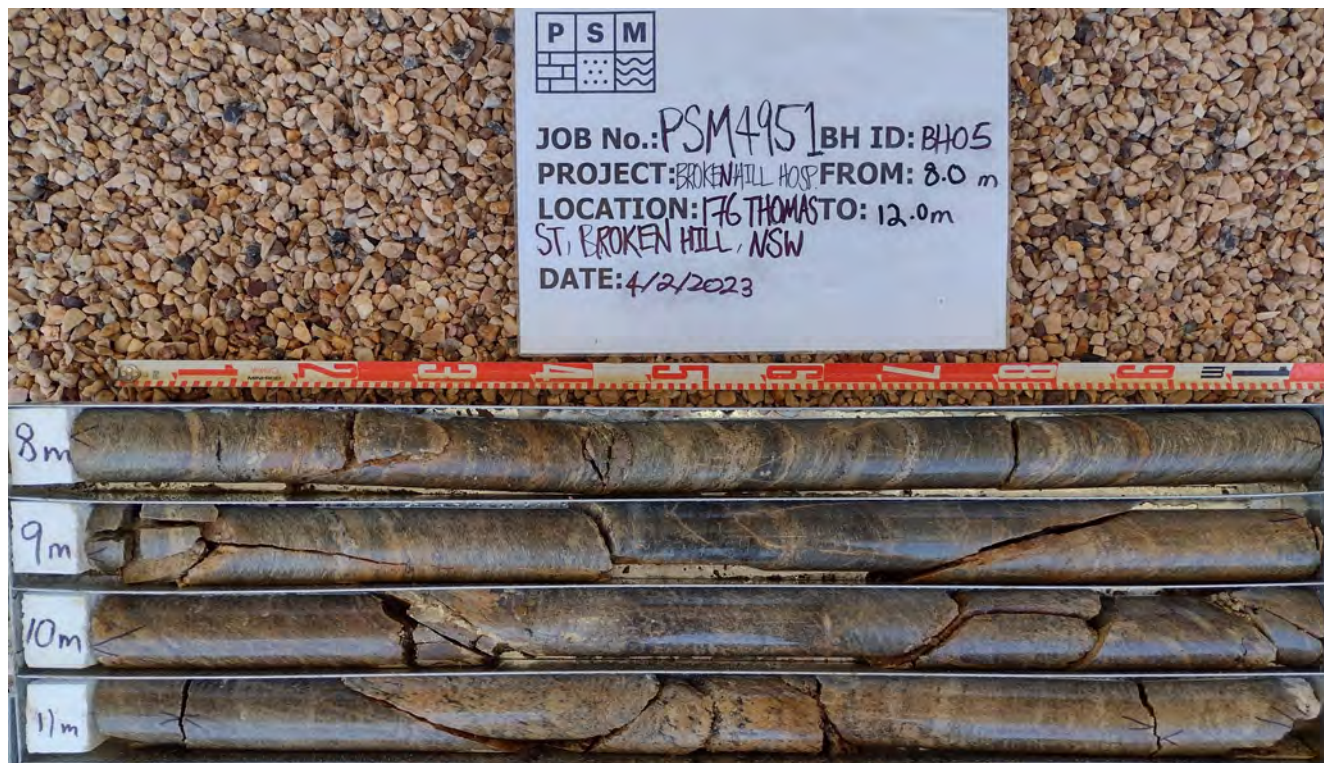 PSM
JOB No.: PSM4951 BH ID: BH05
PROJECT: BROKEN HILL HOSP. FROM: 8.0 m
LOCATION: 176 THOMAS TO: 12.0m
ST, BROKEN HILL, NSW
DATE: 4/2/2023
1 2 3 4 5 6 7 8 9 1 m
8m
9m
10m
11m